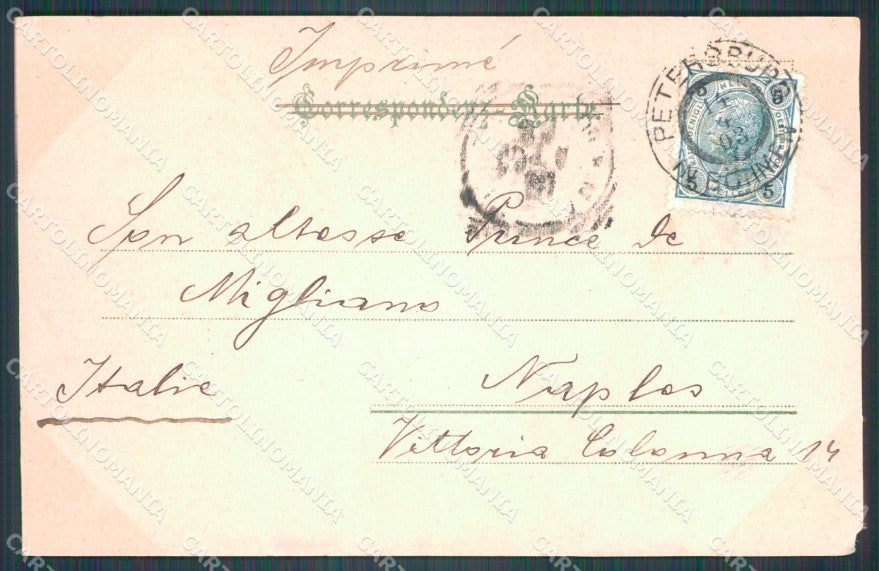 Imprimé
Correspondenz-Karte
PETERSBURG
5 5
5 5
Son altesse Prince de
Migliano
Italie
Naples
Vittoria Colonna 14
CARTOLINOMANIA